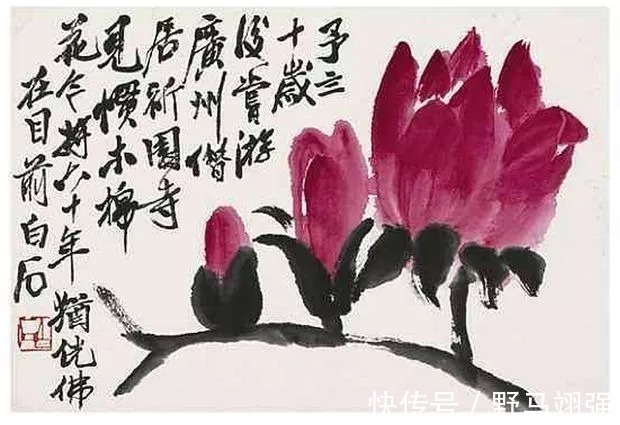 予三
十歲
後嘗游
廣州僭
居祈園寺
見慣木棉
花今將六十年猶恍佛
在目前白石
快传号 / 野马翊强